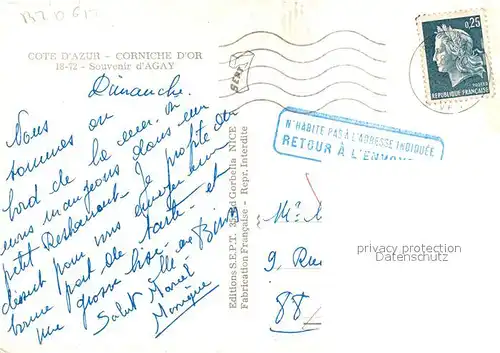 COTE D'AZUR - CORNICHE D'OR
18-72 - Souvenir d'AGAY
Dimanche.
Nous
sommes au
bord de la mer.
nous mangeons dans un
petit Restaurant. Je profite du
désert pour vous envoyer une
bonne part de tarte et
une grosse bise.
Salut Marcel
Monique
Editions S.E.P.T. Gorbella NICE
Fabrication Française - Repr. Interdite
0,25
REPUBLIQUE FRANÇAISE
N'HABITE PAS À L'ADRESSE INDIQUÉE
RETOUR À L'ENVOYEUR
9, Rue
88
privacy protection
www.ansichtskartenversand.com